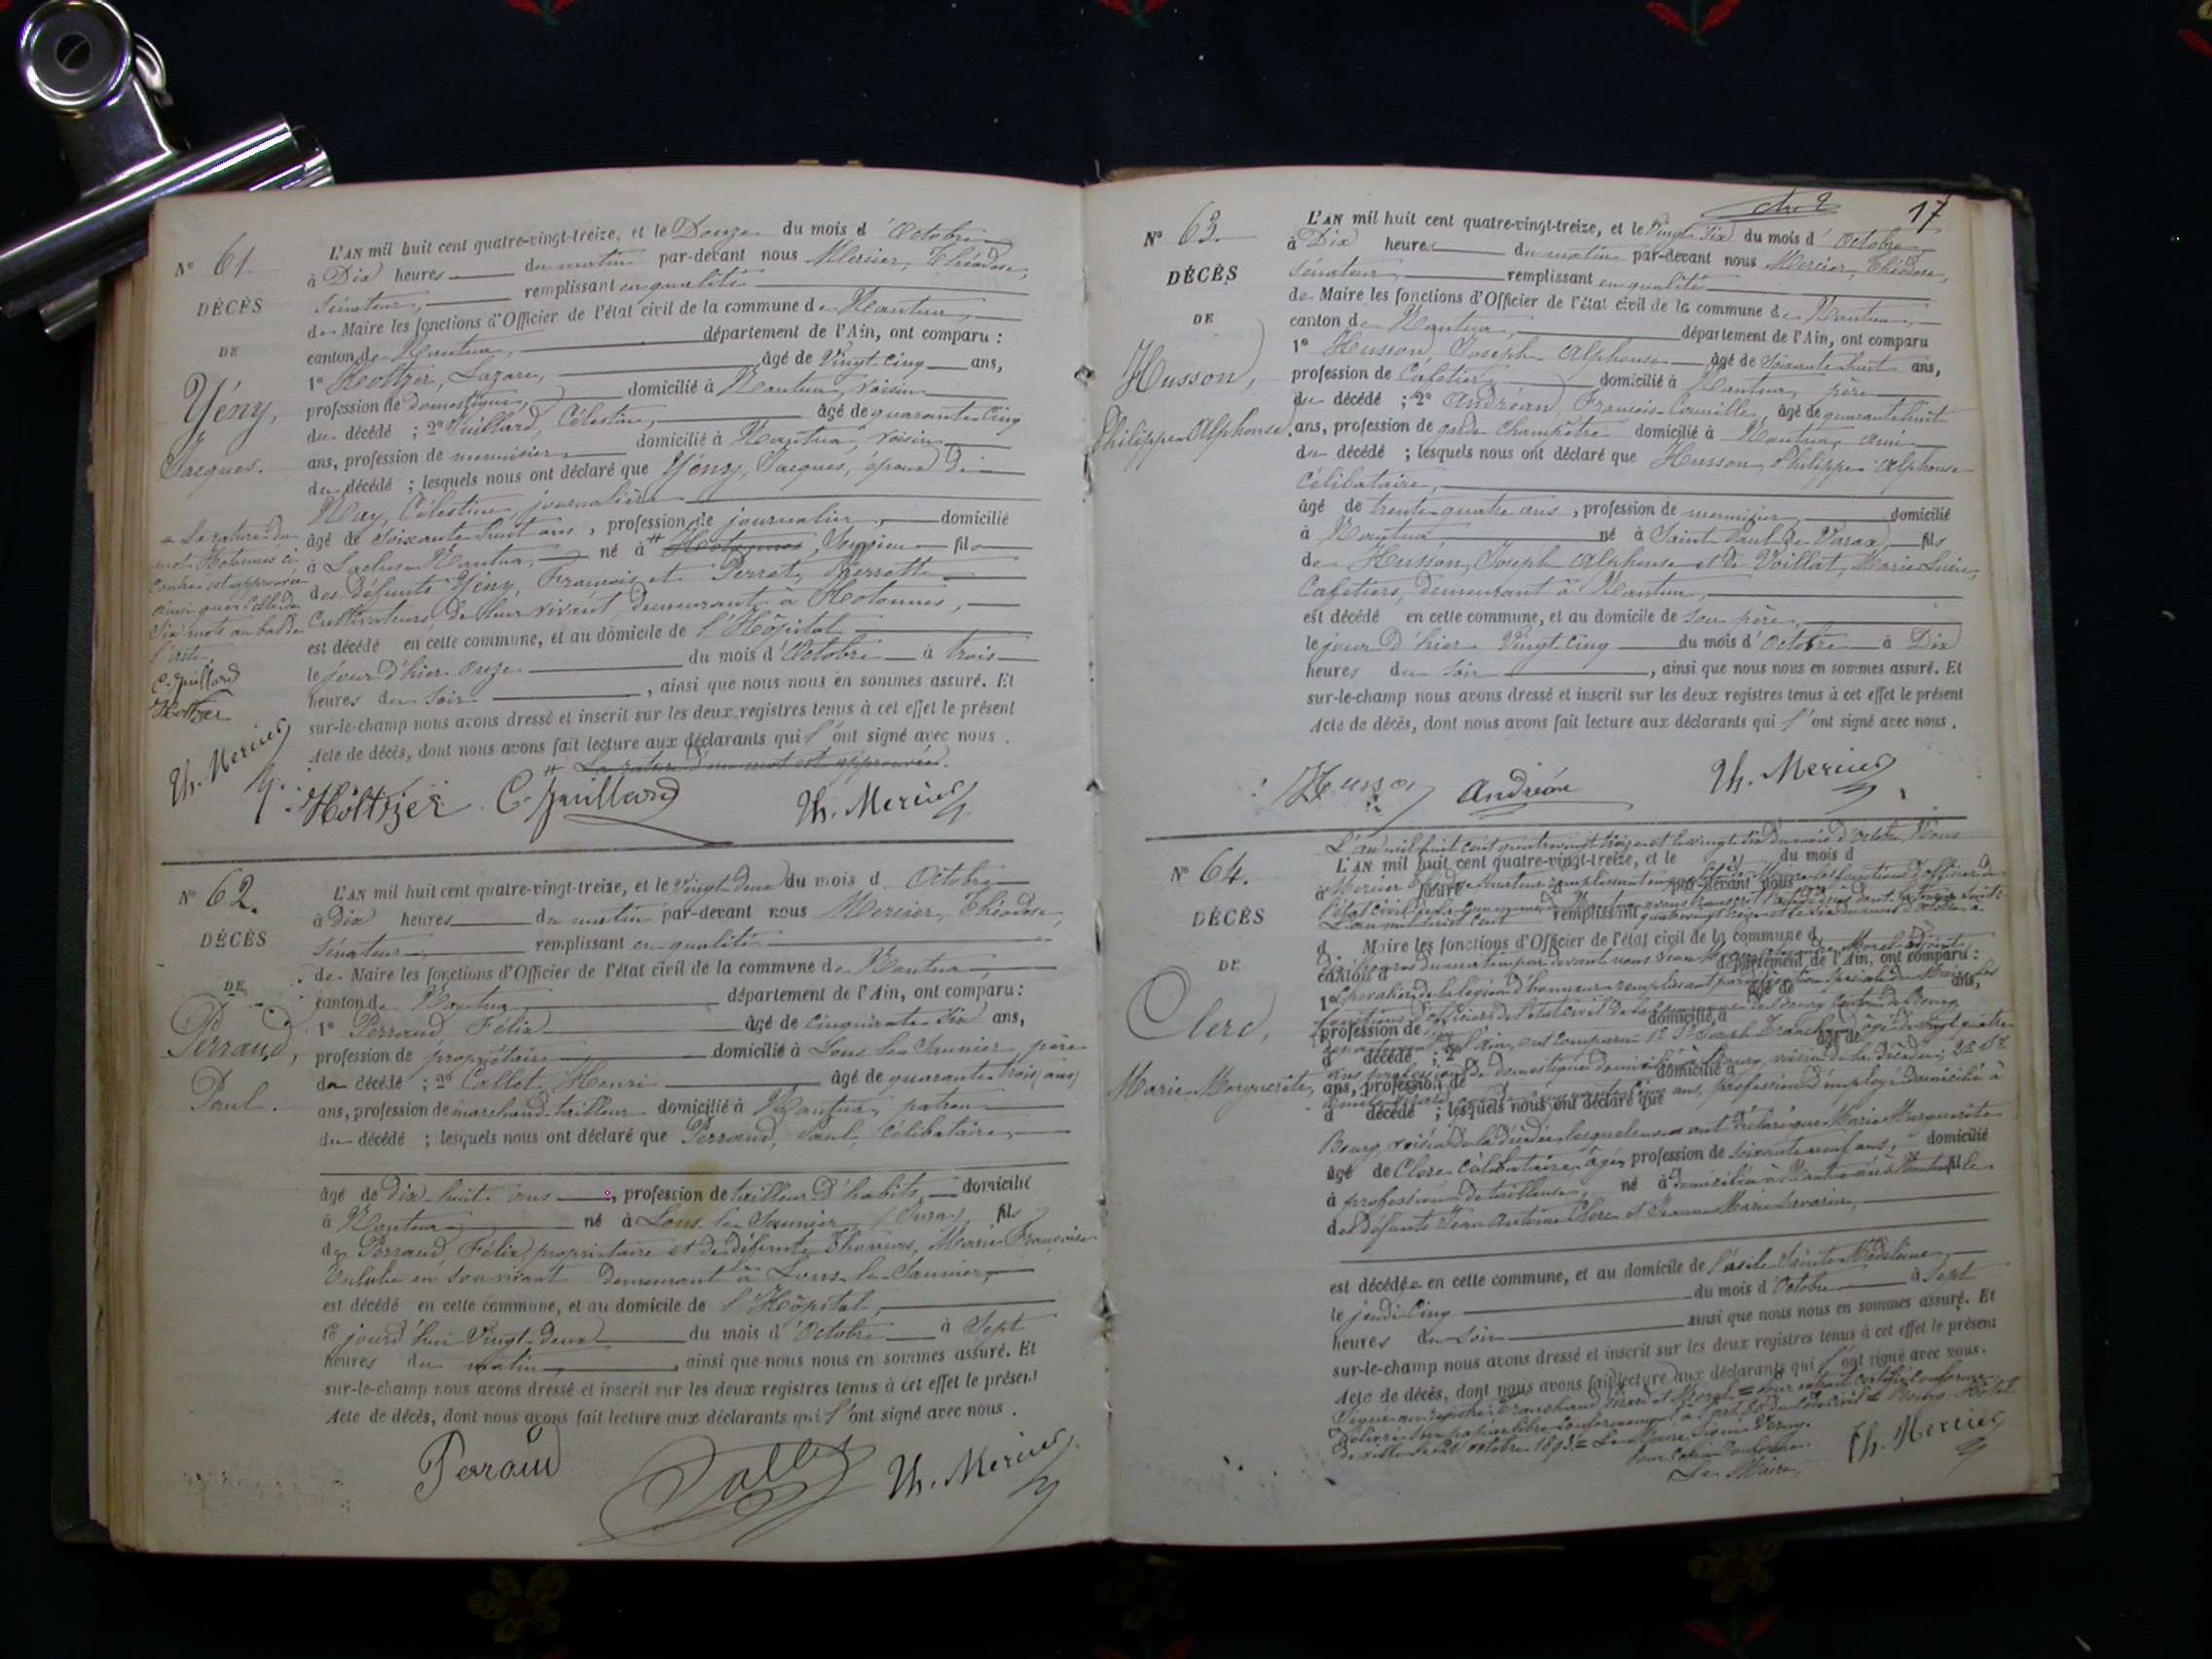 N° 61.
DÉCÈS
DE
Yény,
Jacques.
La rature du
mot Hotonnes ci
contre est approuvée
ainsi que celle de
six mots au bas de
l'acte.
C. Juillard
Höltzer
Th. Mercier
L'AN mil huit cent quatre-vingt-treize, et le Douze du mois d'Octobre
à Dix heures du matin par-devant nous Mercier, Théodose,
Sénateur, remplissant en qualité
de Maire les fonctions d'Officier de l'état civil de la commune de Nantua,
canton de Nantua, département de l'Ain, ont comparu :
1° Höltzer, Lazare, âgé de Vingt-cinq ans,
profession de domestique, domicilié à Nantua, voisin
du décédé ; 2° Juillard, Célestin, âgé de quarante-cinq
ans, profession de menuisier domicilié à Nantua, voisin
du décédé ; lesquels nous ont déclaré que Yény, Jacques, époux de
Ray, Célestine, journalière
âgé de Soixante huit ans, profession de journalier, domicilié
à Nantua, né à # Hotonnes, Songieu fils
des défunts Yény, François et Perret, Pierrette
Cultivateurs, de leur vivant, demeurant à Hotonnes,
est décédé en cette commune, et au domicile de l'Hôpital
le jour d'hier onze du mois d'Octobre à trois
heures du soir, ainsi que nous nous en sommes assuré. Et
sur-le-champ nous avons dressé et inscrit sur les deux registres tenus à cet effet le présent
Acte de décès, dont nous avons fait lecture aux déclarants qui l'ont signé avec nous.
# La rature d'un mot est approuvée.
Höltzer C. Juillard Th. Mercier
N° 62.
DÉCÈS
DE
Perraud,
Paul.
L'AN mil huit cent quatre-vingt-treize, et le Vingt-deux du mois d Octobre
à Dix heures du matin par-devant nous Mercier, Théodose,
Sénateur remplissant en qualité
de Maire les fonctions d'Officier de l'état civil de la commune de Nantua,
canton de Nantua département de l'Ain, ont comparu :
1° Perraud, Félix âgé de cinquante-six ans,
profession de propriétaire domicilié à Lons-le-Saunier père
du décédé ; 2° Callet, Henri âgé de quarante-trois ans
ans, profession de marchand-tailleur domicilié à Nantua, patron
du décédé ; lesquels nous ont déclaré que Perraud, Paul, Célibataire,
âgé de Dix-huit ans, profession de tailleur d'habits, domicilié
à Nantua, né à Lons-le-Saunier (Jura) fils
de Perraud, Félix, propriétaire et de défunte Thomas, Marie Françoise
Eulalie en son vivant demeurant à Lons-le-Saunier,
est décédé en cette commune, et au domicile de l'Hôpital,
ce jourd'hui Vingt-deux du mois d'Octobre à Sept
heures du matin, ainsi que nous nous en sommes assuré. Et
sur-le-champ nous avons dressé et inscrit sur les deux registres tenus à cet effet le présent
Acte de décès, dont nous avons fait lecture aux déclarants qui l'ont signé avec nous.
Perraud Callet Th. Mercier
17
N° 63.
DÉCÈS
DE
Husson,
Philippe Alphonse.
L'AN mil huit cent quatre-vingt-treize, et le Vingt-Six du mois d'Octobre
à Dix heures du matin par-devant nous Mercier, Théodose,
Sénateur, remplissant en qualité
de Maire les fonctions d'Officier de l'état civil de la commune de Nantua,
canton de Nantua, département de l'Ain, ont comparu
1° Husson, Joseph Alphonse âgé de soixante huit ans,
profession de Cafetier domicilié à Nantua, père
du décédé ; 2° Andréan, François-Camille, âgé de quarante-huit
ans, profession de garde champêtre domicilié à Nantua, ami
du décédé ; lesquels nous ont déclaré que Husson, Philippe-Alphonse
Célibataire,
âgé de trente-quatre ans, profession de menuisier, domicilié
à Nantua né à Saint Paul de Varax, fils
de Husson, Joseph Alphonse et de Voillat, Marie
Cafetiers, demeurant à Nantua,
est décédé en cette commune, et au domicile de son père,
le jour d'hier Vingt-Cinq du mois d'Octobre à Dix
heures du Soir, ainsi que nous nous en sommes assuré. Et
sur-le-champ nous avons dressé et inscrit sur les deux registres tenus à cet effet le présent
Acte de décès, dont nous avons fait lecture aux déclarants qui l'ont signé avec nous.
Husson Andréan Th. Mercier
N° 64.
DÉCÈS
DE
Clerc,
Marie-Marguerite,
L'an mil huit cent quatre vingt treize et le vingt six du mois d'Octobre, Nous
L'AN mil huit cent quatre-vingt-treize, et le du mois d
à heure par-devant nous
remplissant
d Maire les fonctions d'Officier de l'état civil de la commune d
canton d département de l'Ain, ont comparu :
1° âgé de ans,
profession de domicilié à
d décédé ; 2° âgé de
ans, profession de domicilié à
d décédé ; lesquels nous ont déclaré que
Bourg voisin de la décédée, lesquels nous ont déclaré que Marie Marguerite
âgé de Clerc célibataire, âgée, profession de soixante neuf ans, domicilié
à profession de tailleuse, né à domiciliée à Nantua née à Nantua fille
des défunts Jean Antoine Clerc et Jeanne Marie Savarin,
est décédée en cette commune, et au domicile de l'asile Sainte Madeleine,
le jeudi cinq du mois d'Octobre à Sept
heures du soir ainsi que nous nous en sommes assuré. Et
sur-le-champ nous avons dressé et inscrit sur les deux registres tenus à cet effet le présent
Acte de décès, dont nous avons fait lecture aux déclarants qui l'ont signé avec nous.
Pour copie conforme.
Le Maire,
Th. Mercier